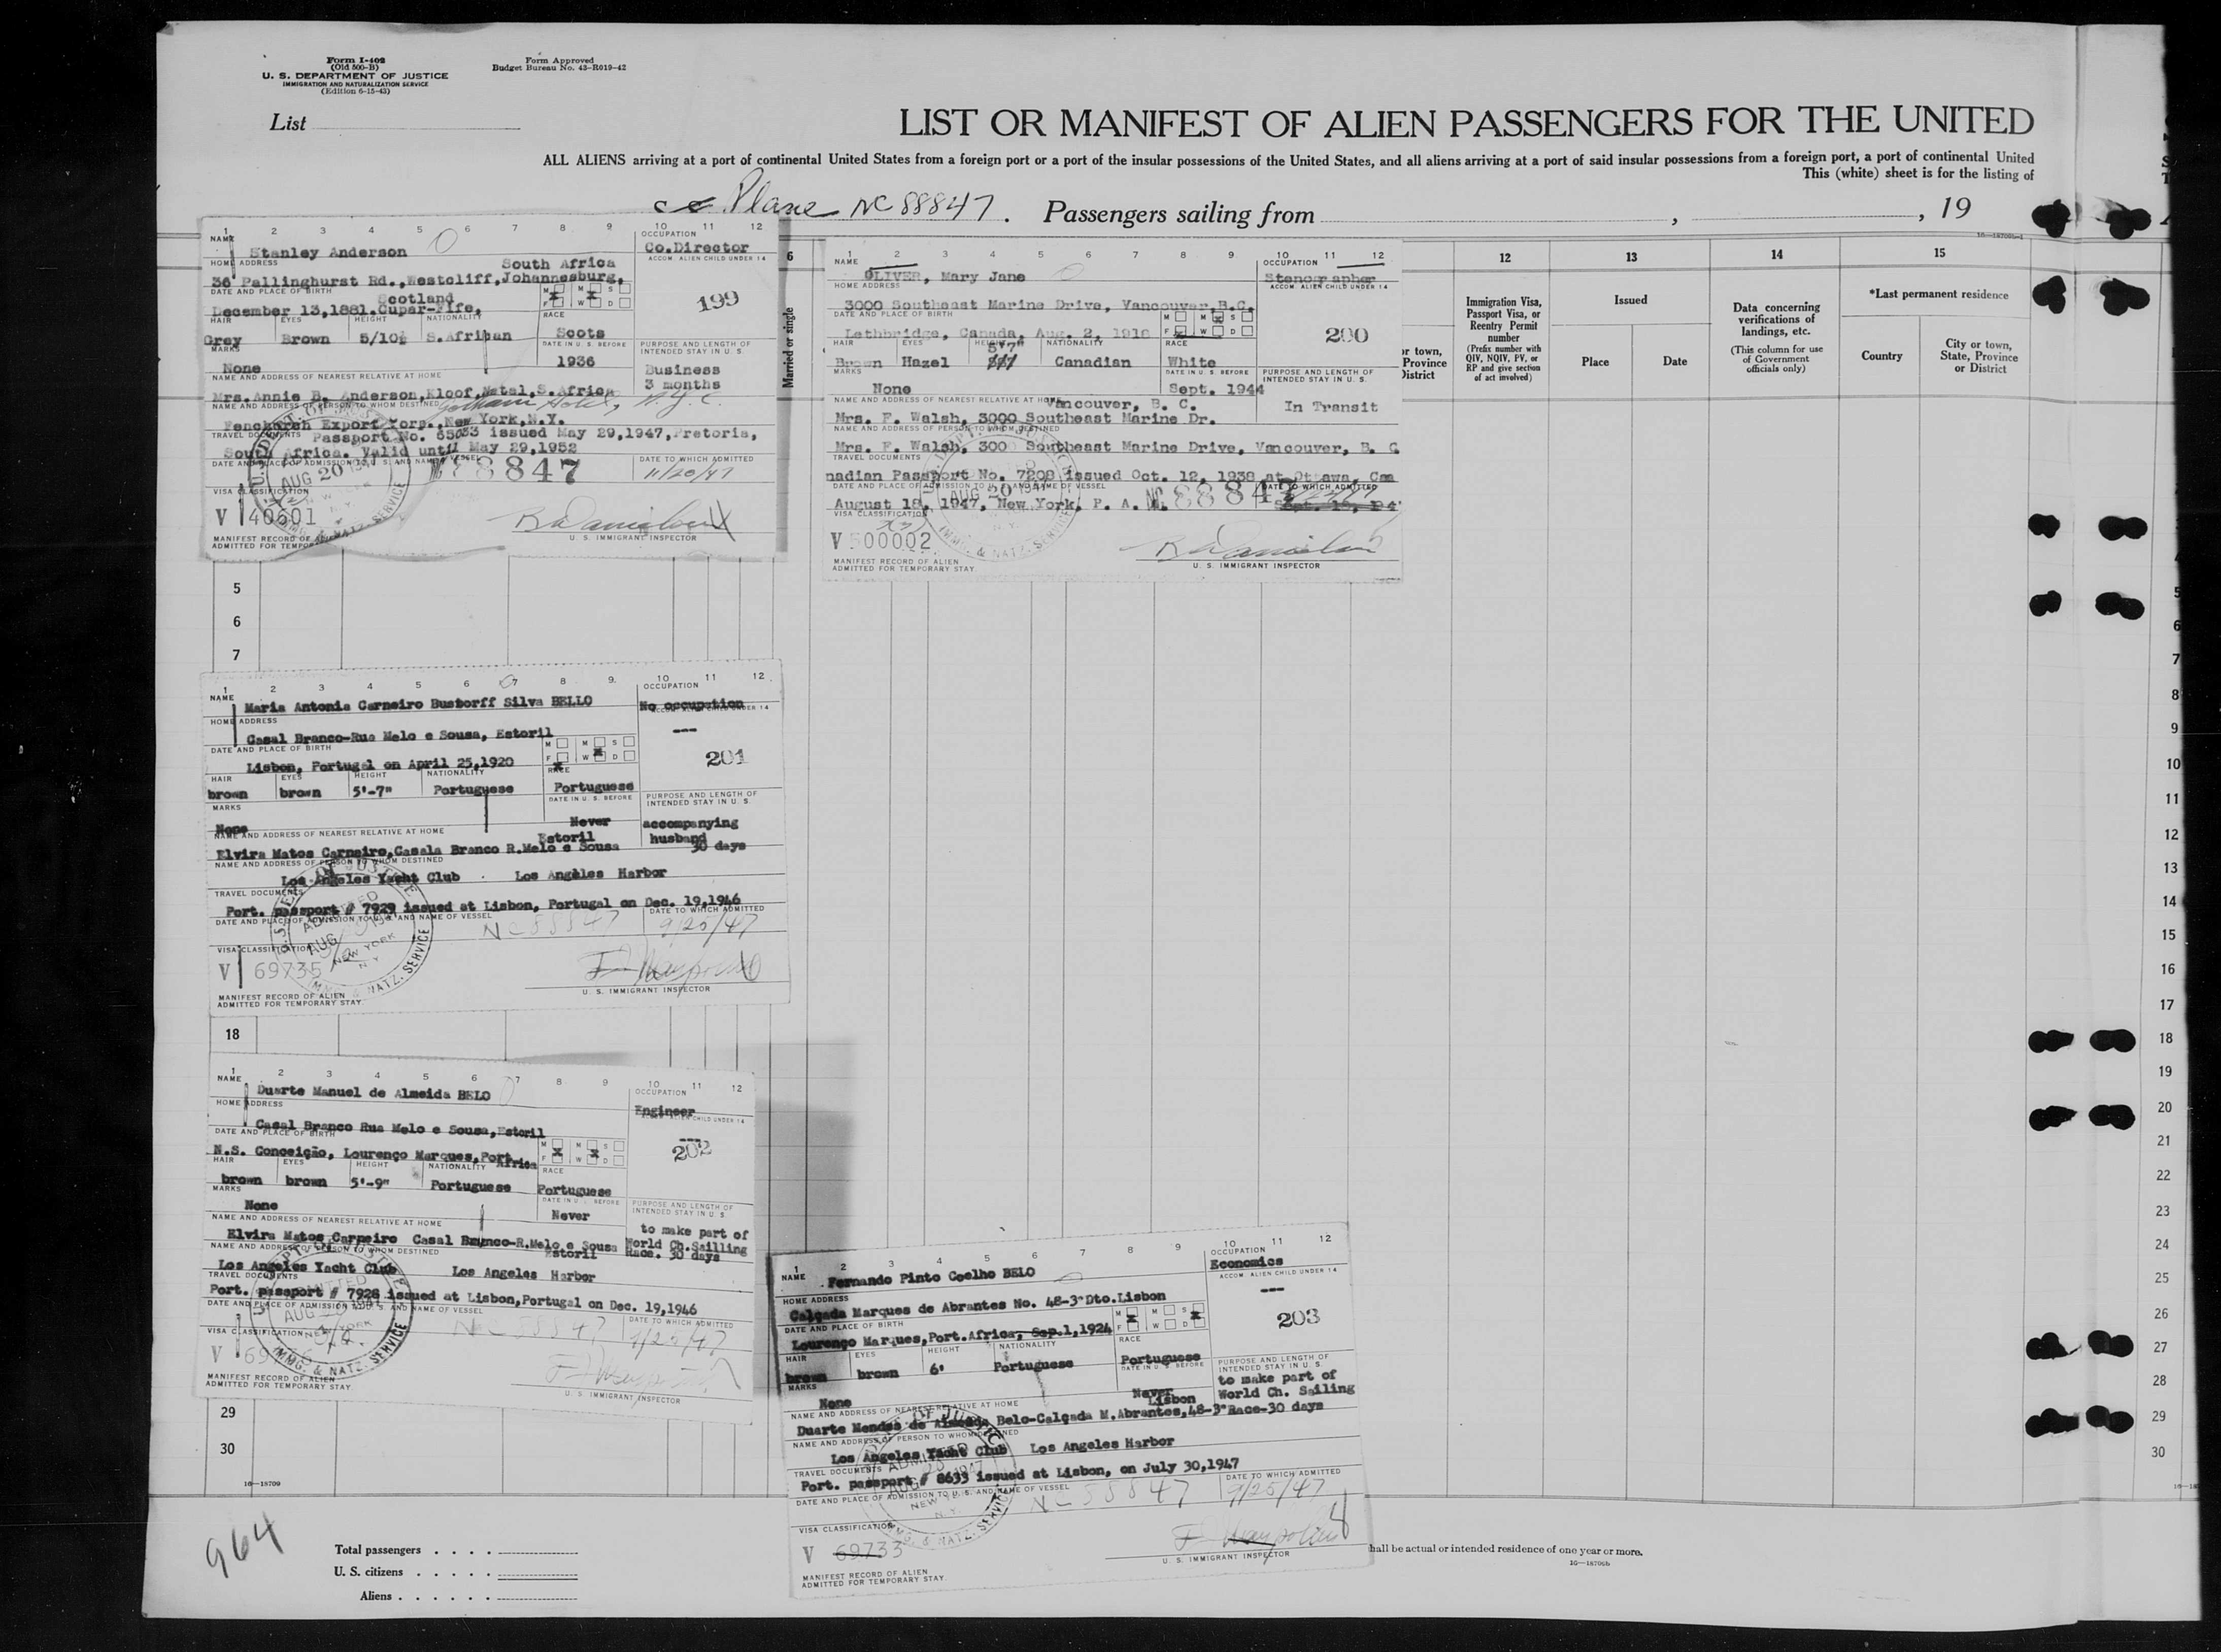 Form I-402
(Old 500-B)
U. S. DEPARTMENT OF JUSTICE
IMMIGRATION AND NATURALIZATION SERVICE
(Edition 6-15-43)
Form Approved
Budget Bureau No. 43-R019-42
List
LIST OR MANIFEST OF ALIEN PASSENGERS FOR THE UNITED
ALL ALIENS arriving at a port of continental United States from a foreign port or a port of the insular possessions of the United States, and all aliens arriving at a port of said insular possessions from a foreign port, a port of continental United
This (white) sheet is for the listing of
Plane NC 88847. Passengers sailing from , , 19
1 2 3 4 5 6 7 8 9 10 11 12
NAME OCCUPATION
Stanley Anderson Co.Director
HOME ADDRESS ACCOM. ALIEN CHILD UNDER 14
South Africa
36 Pallinghurst Rd.,Westcliff,Johannesburg,
DATE AND PLACE OF BIRTH M M S
Scotland F W D
December 13,1881.Cupar-Fife, 199
HAIR EYES HEIGHT NATIONALITY RACE
Grey Brown 5/10½ S.African Scots
MARKS DATE IN U. S. BEFORE PURPOSE AND LENGTH OF INTENDED STAY IN U. S.
None 1936 Business
3 months
NAME AND ADDRESS OF NEAREST RELATIVE AT HOME
Mrs.Annie B. Anderson,Kloof,Natal,S.Africa
NAME AND ADDRESS OF PERSON TO WHOM DESTINED Gotham Hotel, N.Y.C.
Fenchurch Export Corp.,New York,N.Y.
TRAVEL DOCUMENTS Passport No. 65033 issued May 29,1947,Pretoria,
South Africa. Valid until May 29,1952
DATE AND PLACE OF ADMISSION TO U. S. AND NAME OF VESSEL DATE TO WHICH ADMITTED
AUG 20 88847 11/20/47
VISA CLASSIFICATION
V 40601
U. S. IMMIGRANT INSPECTOR
MANIFEST RECORD OF ALIEN
ADMITTED FOR TEMPORARY STAY
6
Married or single
1 2 3 4 5 6 7 8 9 10 11 12
NAME OCCUPATION
OLIVER, Mary Jane Stenographer
HOME ADDRESS ACCOM. ALIEN CHILD UNDER 14
3000 Southeast Marine Drive, Vancouver,B.C.
DATE AND PLACE OF BIRTH M M S
F W D
Lethbridge, Canada, Aug. 2, 1918 200
HAIR EYES HEIGHT NATIONALITY RACE
5'7"
Brown Hazel Canadian White
MARKS DATE IN U. S. BEFORE PURPOSE AND LENGTH OF INTENDED STAY IN U. S.
None Sept. 1944
NAME AND ADDRESS OF NEAREST RELATIVE AT HOME Vancouver, B. C. In Transit
Mrs. F. Walsh, 3000 Southeast Marine Dr.
NAME AND ADDRESS OF PERSON TO WHOM DESTINED
Mrs. F. Walsh, 300 Southeast Marine Drive, Vancouver, B. C
TRAVEL DOCUMENTS
nadian Passport No. 7208 issued Oct. 12, 1938 at Ottawa, Can
DATE AND PLACE OF ADMISSION TO U. S. AND NAME OF VESSEL DATE TO WHICH ADMITTED
August 18, 1947, New York, P. A. NC 88847
VISA CLASSIFICATION
V 500002
U. S. IMMIGRANT INSPECTOR
MANIFEST RECORD OF ALIEN
ADMITTED FOR TEMPORARY STAY
or town, Province District
12 13 14 15
Immigration Visa, Passport Visa, or Reentry Permit number
(Prefix number with QIV, NQIV, PV, or RP and give section of act involved)
Issued
Place Date
Data concerning verifications of landings, etc.
(This column for use of Government officials only)
*Last permanent residence
Country City or town, State, Province or District
5
6
7
1 2 3 4 5 6 7 8 9 10 11 12
NAME OCCUPATION
Maria Antonia Carneiro Bustorff Silva BELLO No occupation
HOME ADDRESS ACCOM. ALIEN CHILD UNDER 14
Casal Branco-Rua Melo e Sousa, Estoril ---
DATE AND PLACE OF BIRTH M M S
F W D
Lisbon, Portugal on April 25,1920 201
HAIR EYES HEIGHT NATIONALITY RACE
brown brown 5'-7" Portuguese Portuguese
MARKS DATE IN U. S. BEFORE PURPOSE AND LENGTH OF INTENDED STAY IN U. S.
None Never accompanying
husband
30 days
NAME AND ADDRESS OF NEAREST RELATIVE AT HOME Estoril
Elvira Matos Carneiro,Casala Branco R.Melo e Sousa
NAME AND ADDRESS OF PERSON TO WHOM DESTINED
Los Angeles Yacht Club Los Angeles Harbor
TRAVEL DOCUMENTS
Port. passport # 7929 issued at Lisbon, Portugal on Dec. 19,1946
DATE AND PLACE OF ADMISSION TO U. S. AND NAME OF VESSEL DATE TO WHICH ADMITTED
NC 88847 9/25/47
VISA CLASSIFICATION
V 69735
U. S. IMMIGRANT INSPECTOR
MANIFEST RECORD OF ALIEN
ADMITTED FOR TEMPORARY STAY
18
1 2 3 4 5 6 7 8 9 10 11 12
NAME OCCUPATION
Duarte Manuel de Almeida BELO Engineer
HOME ADDRESS CHILD UNDER 14
Casal Branco Rua Melo e Sousa,Estoril ---
DATE AND PLACE OF BIRTH M M S
F W D
N.S. Conceição, Lourenço Marques,Port. Africa 202
HAIR EYES HEIGHT NATIONALITY RACE
brown brown 5'-9" Portuguese Portuguese
MARKS DATE IN U. S. BEFORE PURPOSE AND LENGTH OF INTENDED STAY IN U. S.
None Never to make part of
World Ch.Sailling
Race. 30 days
NAME AND ADDRESS OF NEAREST RELATIVE AT HOME
Elvira Matos Carneiro Casal Branco-R.Melo e Sousa
Estoril
NAME AND ADDRESS OF PERSON TO WHOM DESTINED
Los Angeles Yacht Club Los Angeles Harbor
TRAVEL DOCUMENTS
Port. passport # 7928 issued at Lisbon,Portugal on Dec. 19,1946
DATE AND PLACE OF ADMISSION TO U. S. AND NAME OF VESSEL DATE TO WHICH ADMITTED
NC 88847 9/25/47
VISA CLASSIFICATION
V
U. S. IMMIGRANT INSPECTOR
MANIFEST RECORD OF ALIEN
ADMITTED FOR TEMPORARY STAY
29
30
16—18709
1 2 3 4 5 6 7 8 9 10 11 12
NAME OCCUPATION
Fernando Pinto Coelho BELO Economics
HOME ADDRESS ACCOM. ALIEN CHILD UNDER 14
Calçada Marques de Abrantes No. 48-3°Dto.Lisbon ---
DATE AND PLACE OF BIRTH M M S
F W D
Lourenço Marques,Port.Africa, Sep.1,1924 203
HAIR EYES HEIGHT NATIONALITY RACE
brown brown 6' Portuguese Portuguese
MARKS DATE IN U. S. BEFORE PURPOSE AND LENGTH OF INTENDED STAY IN U. S.
None Never to make part of
World Ch. Sailing
NAME AND ADDRESS OF NEAREST RELATIVE AT HOME Lisbon
Duarte Mendes de Almeida Belo-Calçada M.Abrantes,48-3° Race-30 days
NAME AND ADDRESS OF PERSON TO WHOM DESTINED
Los Angeles Yacht Club Los Angeles Harbor
TRAVEL DOCUMENTS
Port. passport # 8633 issued at Lisbon, on July 30,1947
DATE AND PLACE OF ADMISSION TO U. S. AND NAME OF VESSEL DATE TO WHICH ADMITTED
NC 88847 9/25/47
VISA CLASSIFICATION
V 69733
U. S. IMMIGRANT INSPECTOR
MANIFEST RECORD OF ALIEN
ADMITTED FOR TEMPORARY STAY.
5
6
7
8
9
10
11
12
13
14
15
16
17
18
19
20
21
22
23
24
25
26
27
28
29
30
964
Total passengers . . . .
U. S. citizens . . . . .
Aliens . . . . . .
hall be actual or intended residence of one year or more.
16—18709b